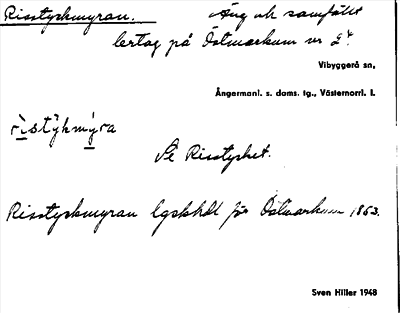 Risstyckmyran. Äng och samfällt
lertag på Östmarkum nr 2.
Vibyggerå sn,
Ångermanl. s. doms. tg., Västernorrl. l.
rìstỳkmỳra
Se Risstycket.
Risstyckmyran lgskhdl för Östmarkum 1863.
Sven Hiller 1948